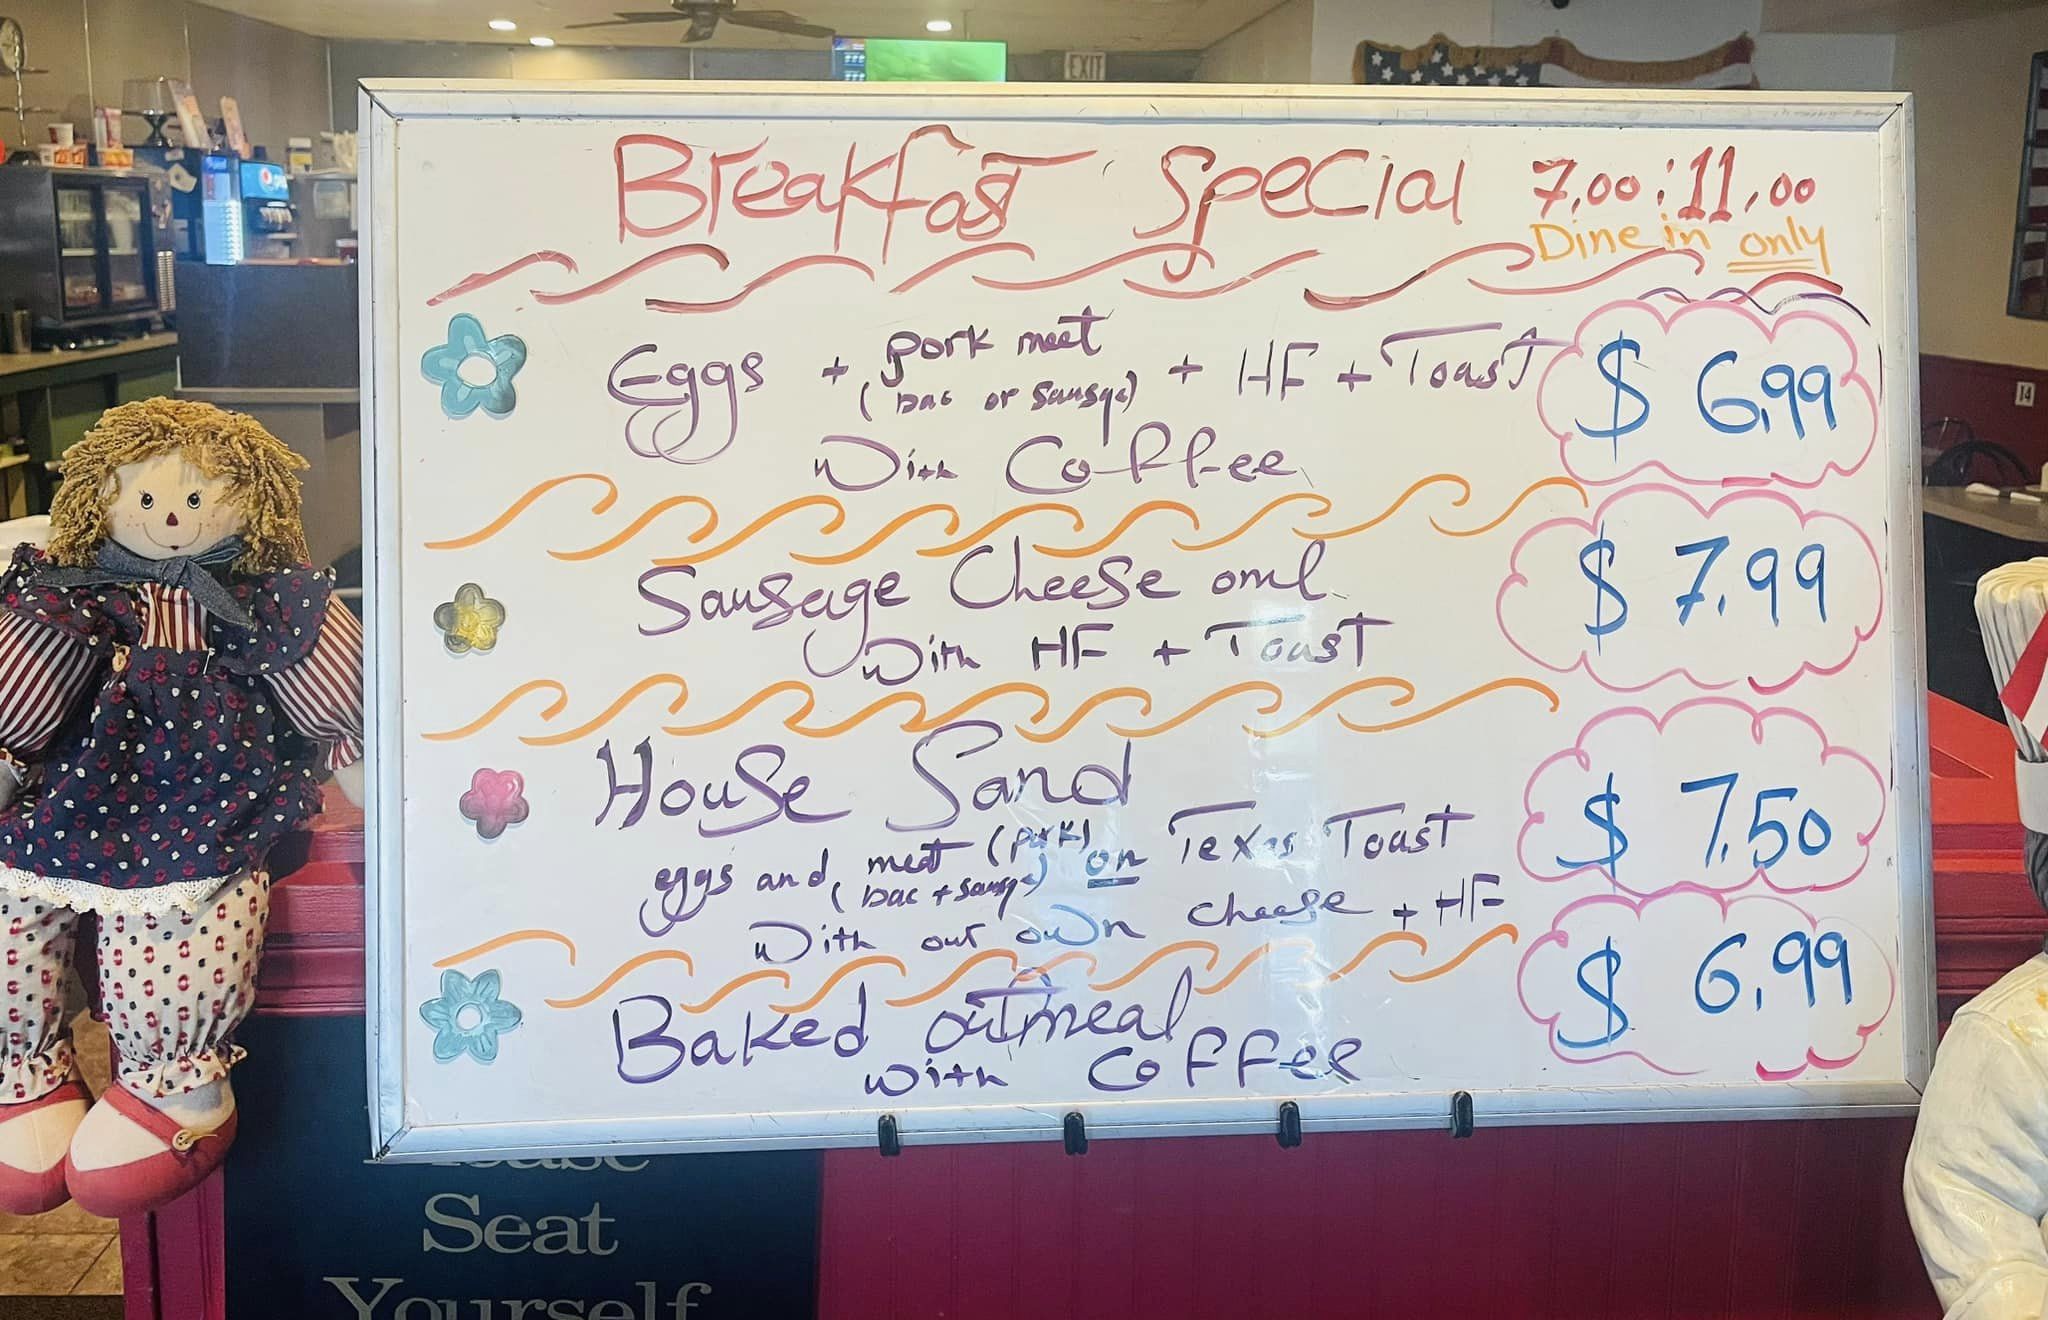 EXIT
Breakfast Special 7,00:11,00
Dine in only
Eggs + pork meet + HF + Toast
(bac or sausge)
With Coffee
$ 6,99
Sausage Cheese oml
With HF + Toast
$ 7.99
House Sand
eggs and meat (pork) on Texas Toast
(bac + sausge)
With out own cheese + HF
$ 7.50
Baked oatmeal
with Coffee
$ 6.99
14
Please
Seat
Yourself